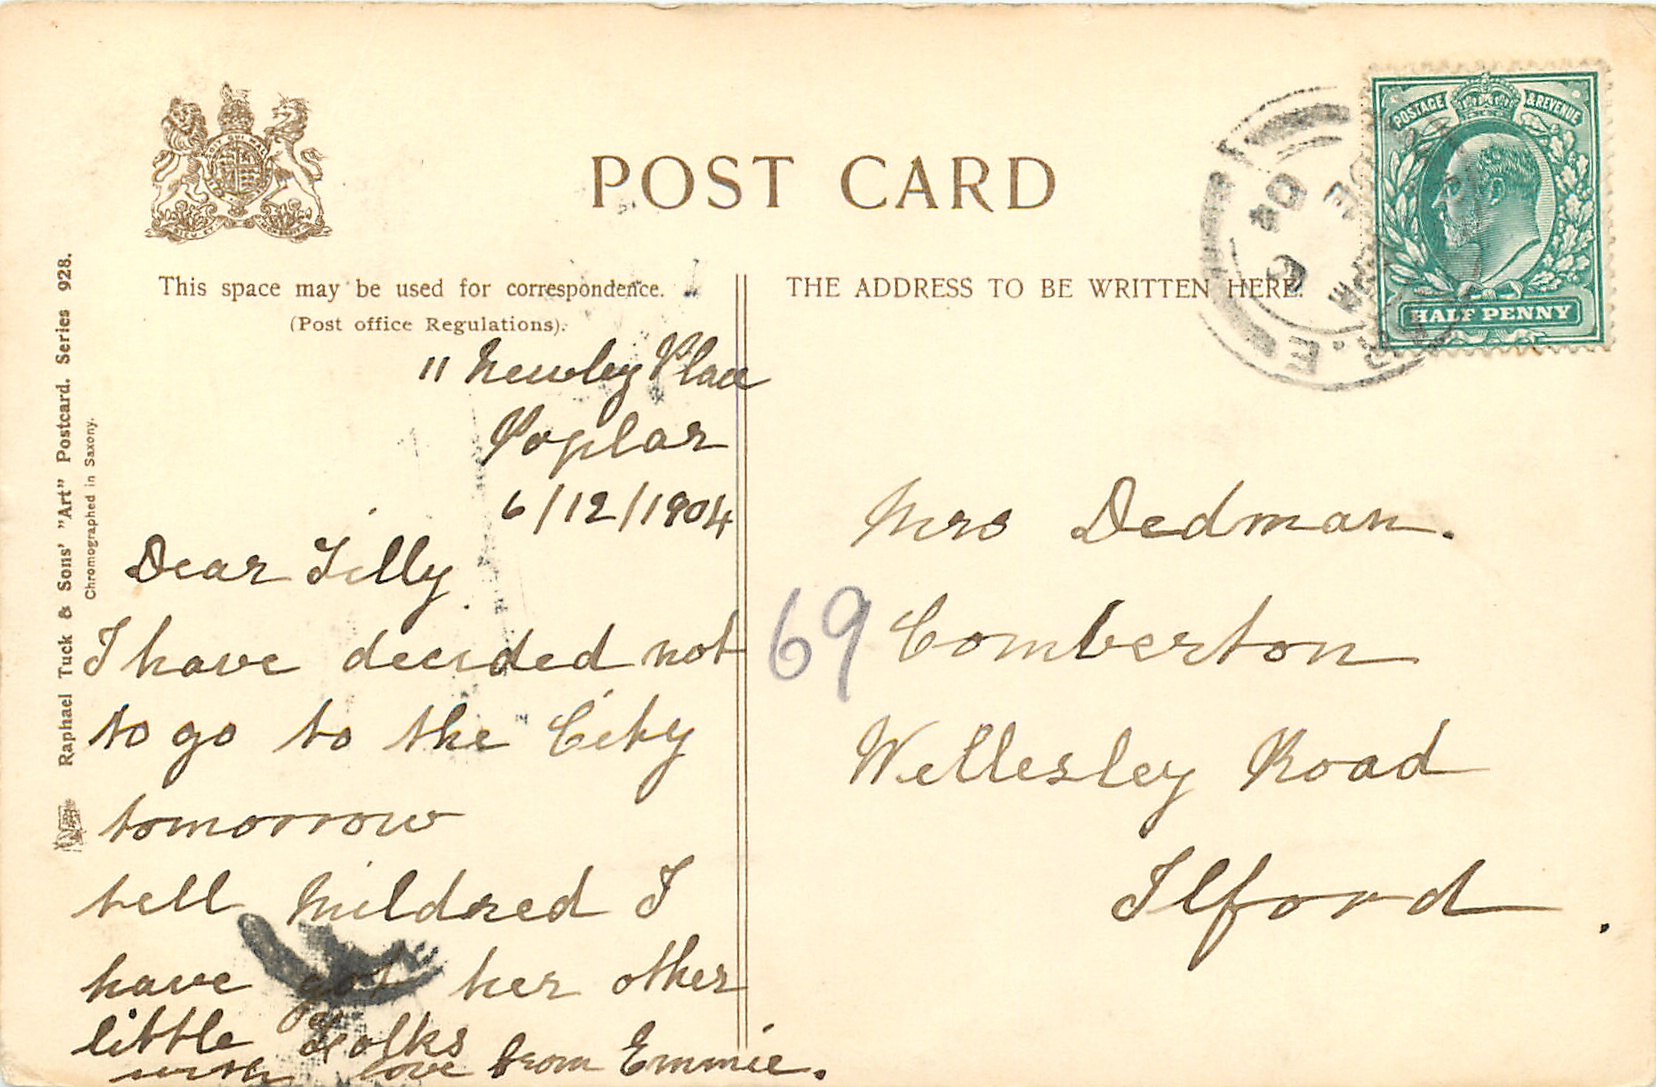 POST CARD
This space may be used for correspondence.
(Post office Regulations).
THE ADDRESS TO BE WRITTEN HERE.
POSTAGE & REVENUE
HALF PENNY
Raphael Tuck & Sons' "Art" Postcard. Series 928.
Chromographed in Saxony.
11 Newby Place
Poplar
6/12/1904
Dear Tilly
I have decided not
to go to the City
tomorrow
tell Mildred I
have got her other
little Folks
with love from Emmie.
69
Mrs Dedman.
Comberton
Wellesley Road
Ilford.